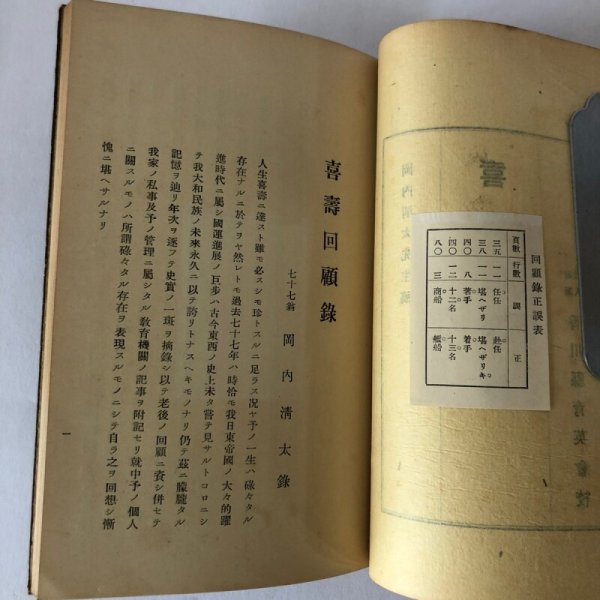 回顧錄正誤表
頁數 行數 誤 正
三五 一一 任任 赴任
三八 一一 堪ヘザリ 堪ヘザリキ
四〇 八 著手 着手
四〇 一二 十二名 十三名
八〇 三 商船 艦船
喜壽回顧錄
七十七翁 岡內淸太錄
人生喜壽ニ達スト雖モ必スシモ珍トスルニ足ラス況ヤ予ノ一生ハ碌々タル
存在ナルニ於テヲヤ然レトモ過去七十七年ハ時恰モ我日東帝國ノ大々的躍
進時代ニ屬シ國運進展ノ巨步ハ古今東西ノ史上未タ嘗テ見サルトコロニシ
テ我大和民族ノ未來永久ニ以テ誇リトナスヘキモノナリ仍テ茲ニ朦朧タル
記憶ヲ辿リ年次ヲ逐フテ史實ノ一斑ヲ摘錄シ以テ老後ノ回顧ニ資シ併セテ
我家ノ私事及予ノ管理ニ屬シタル敎育機關ノ記事ヲ附記セリ就中予ノ個人
ニ關スルモノハ所謂碌々タル存在ヲ表現スルモノニシテ自ラ之ヲ回想シ慚
愧ニ堪ヘサルナリ
一